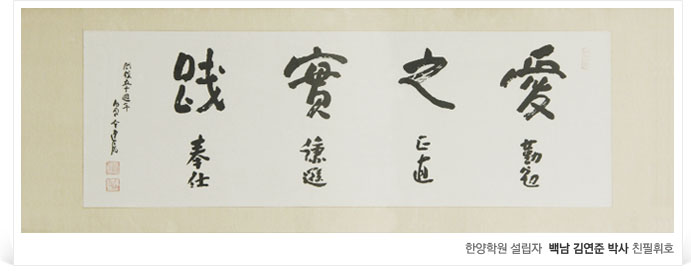 愛之實踐
勤勉 正直 謙遜 奉仕
開校五十週年
白南 金連俊
한양학원 설립자 백남 김연준 박사 친필휘호